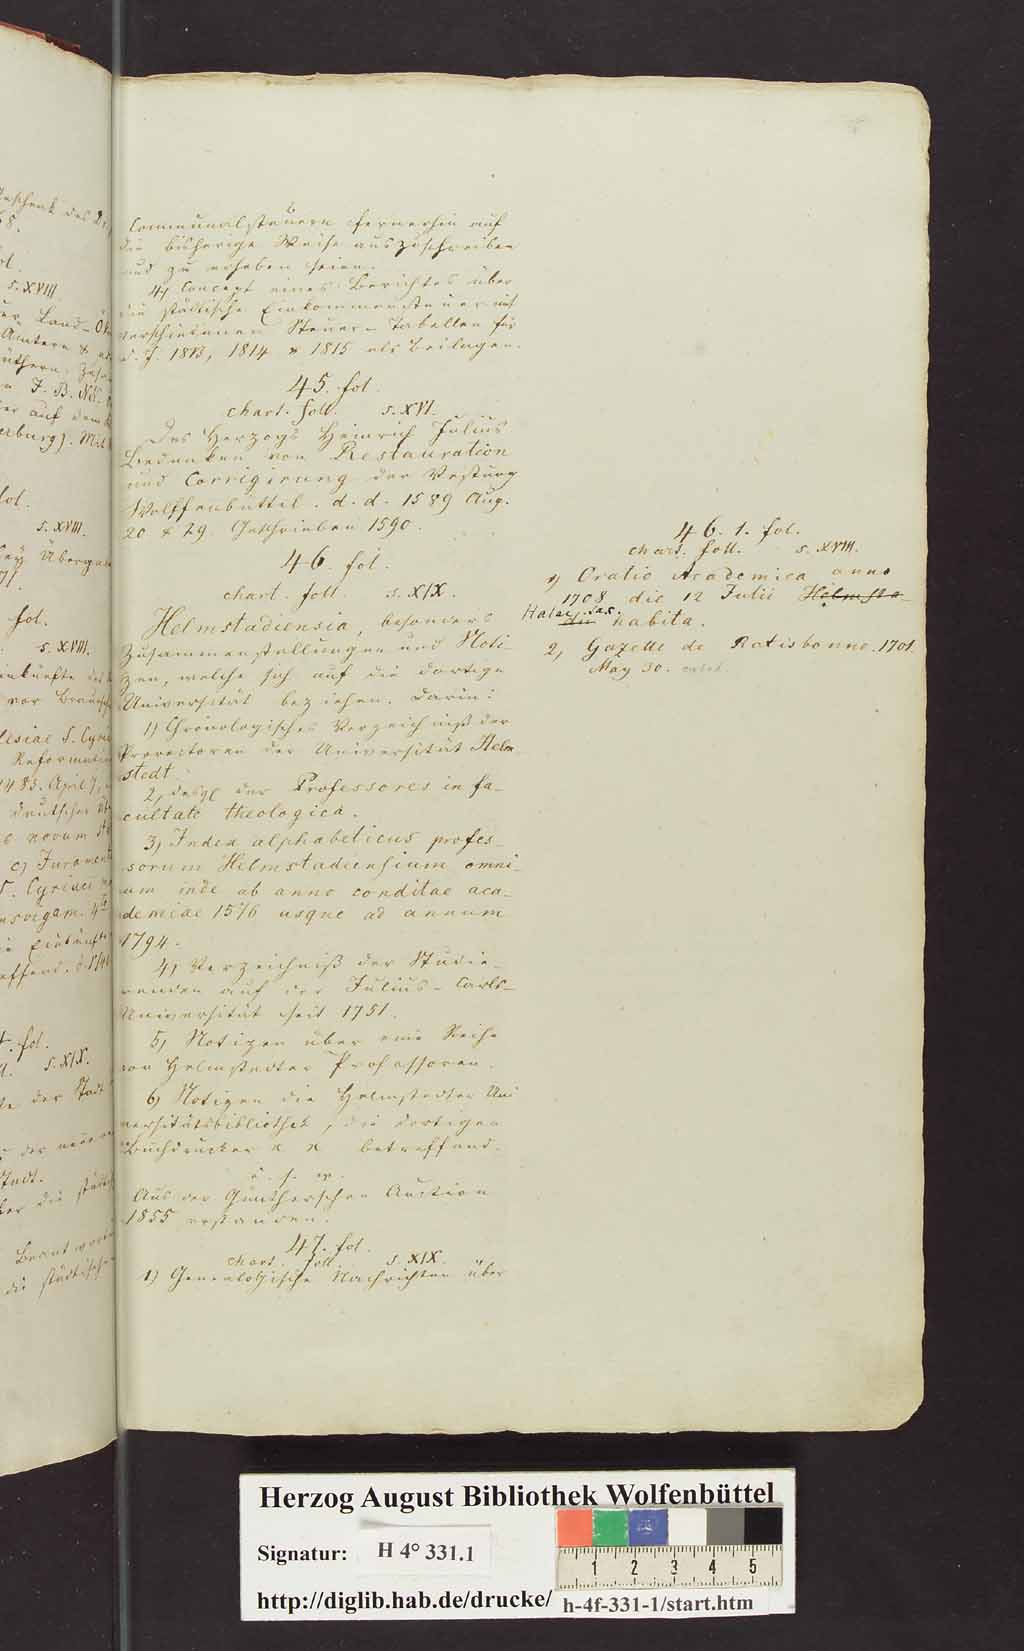 Communalsteuern fernerhin auf
die bisherige Weise auszuschreiben
und zu erheben seien.
4) Concept eines Berichtes über
die städtische Einkommensteuer mit
verschiedenen Steuer-Tabellen für
d. J. 1813, 1814 & 1815 als Beilagen.
45. fol.
chart. foll. s. XVI.
Des Herzogs Heinrich Julius
Bedenken von Restauration
und Corrigirung der Vestung
Wolffenbüttel. d. d. 1589 Aug.
20 & 29. Geschrieben 1590.
46. fol.
chart. foll. s. XIX.
Helmstadiensia, besonders
Zusammenstellungen und Noti-
zen, welche sich auf die dortige
Universität beziehen. Darin:
1) Chronologisches Verzeichniß der
Prorectoren der Universität Helm-
stedt.
2, desgl der Professores in fa-
cultate theologica.
3) Index alphabeticus profes-
sorum Helmstadiensium omni-
um inde ab anno conditae aca-
demiae 1576 usque ad annum
1794.
4) Verzeichniß der Studie-
renden auf der Julius-Carls-
Universität seit 1751.
5) Notizen über eine Reihe
von Helmstedter Professoren.
6) Notizen die Helmstedter Uni
versitätsbibliothek, die dortigen
Buchdrucker betreffend.
u. s. w.
Aus der Güntherschen Auction
1855 erstanden.
47. fol.
chart. foll. s. XIX.
1) Genealogische Nachrichten über
46. 1. fol.
chart. foll. s. XVIII.
1) Oratio Academica anno
1708 die 12 Julii Helmsta-
Halae Sax.
dii habita.
2, Gazette de Ratisbonne. 1701.
May 30.
Geschenk des
s. XVIII
Land-Ö
Ämtern &
J. B.
auf dem
s. XVIII.
fol.
s. XVIII.
vor Braunsch
lesiae S. Cyri
Reformati
1483. April
deutscher
novum
c) Jurament
S. Cyriaci
fol.
s. XIX.
der Stadt
der neuen
Stadt.
über die städt
Beant
die städtische
Herzog August Bibliothek Wolfenbüttel
Signatur: H 4° 331.1
1 2 3 4 5
http://diglib.hab.de/drucke/ h-4f-331-1/start.htm